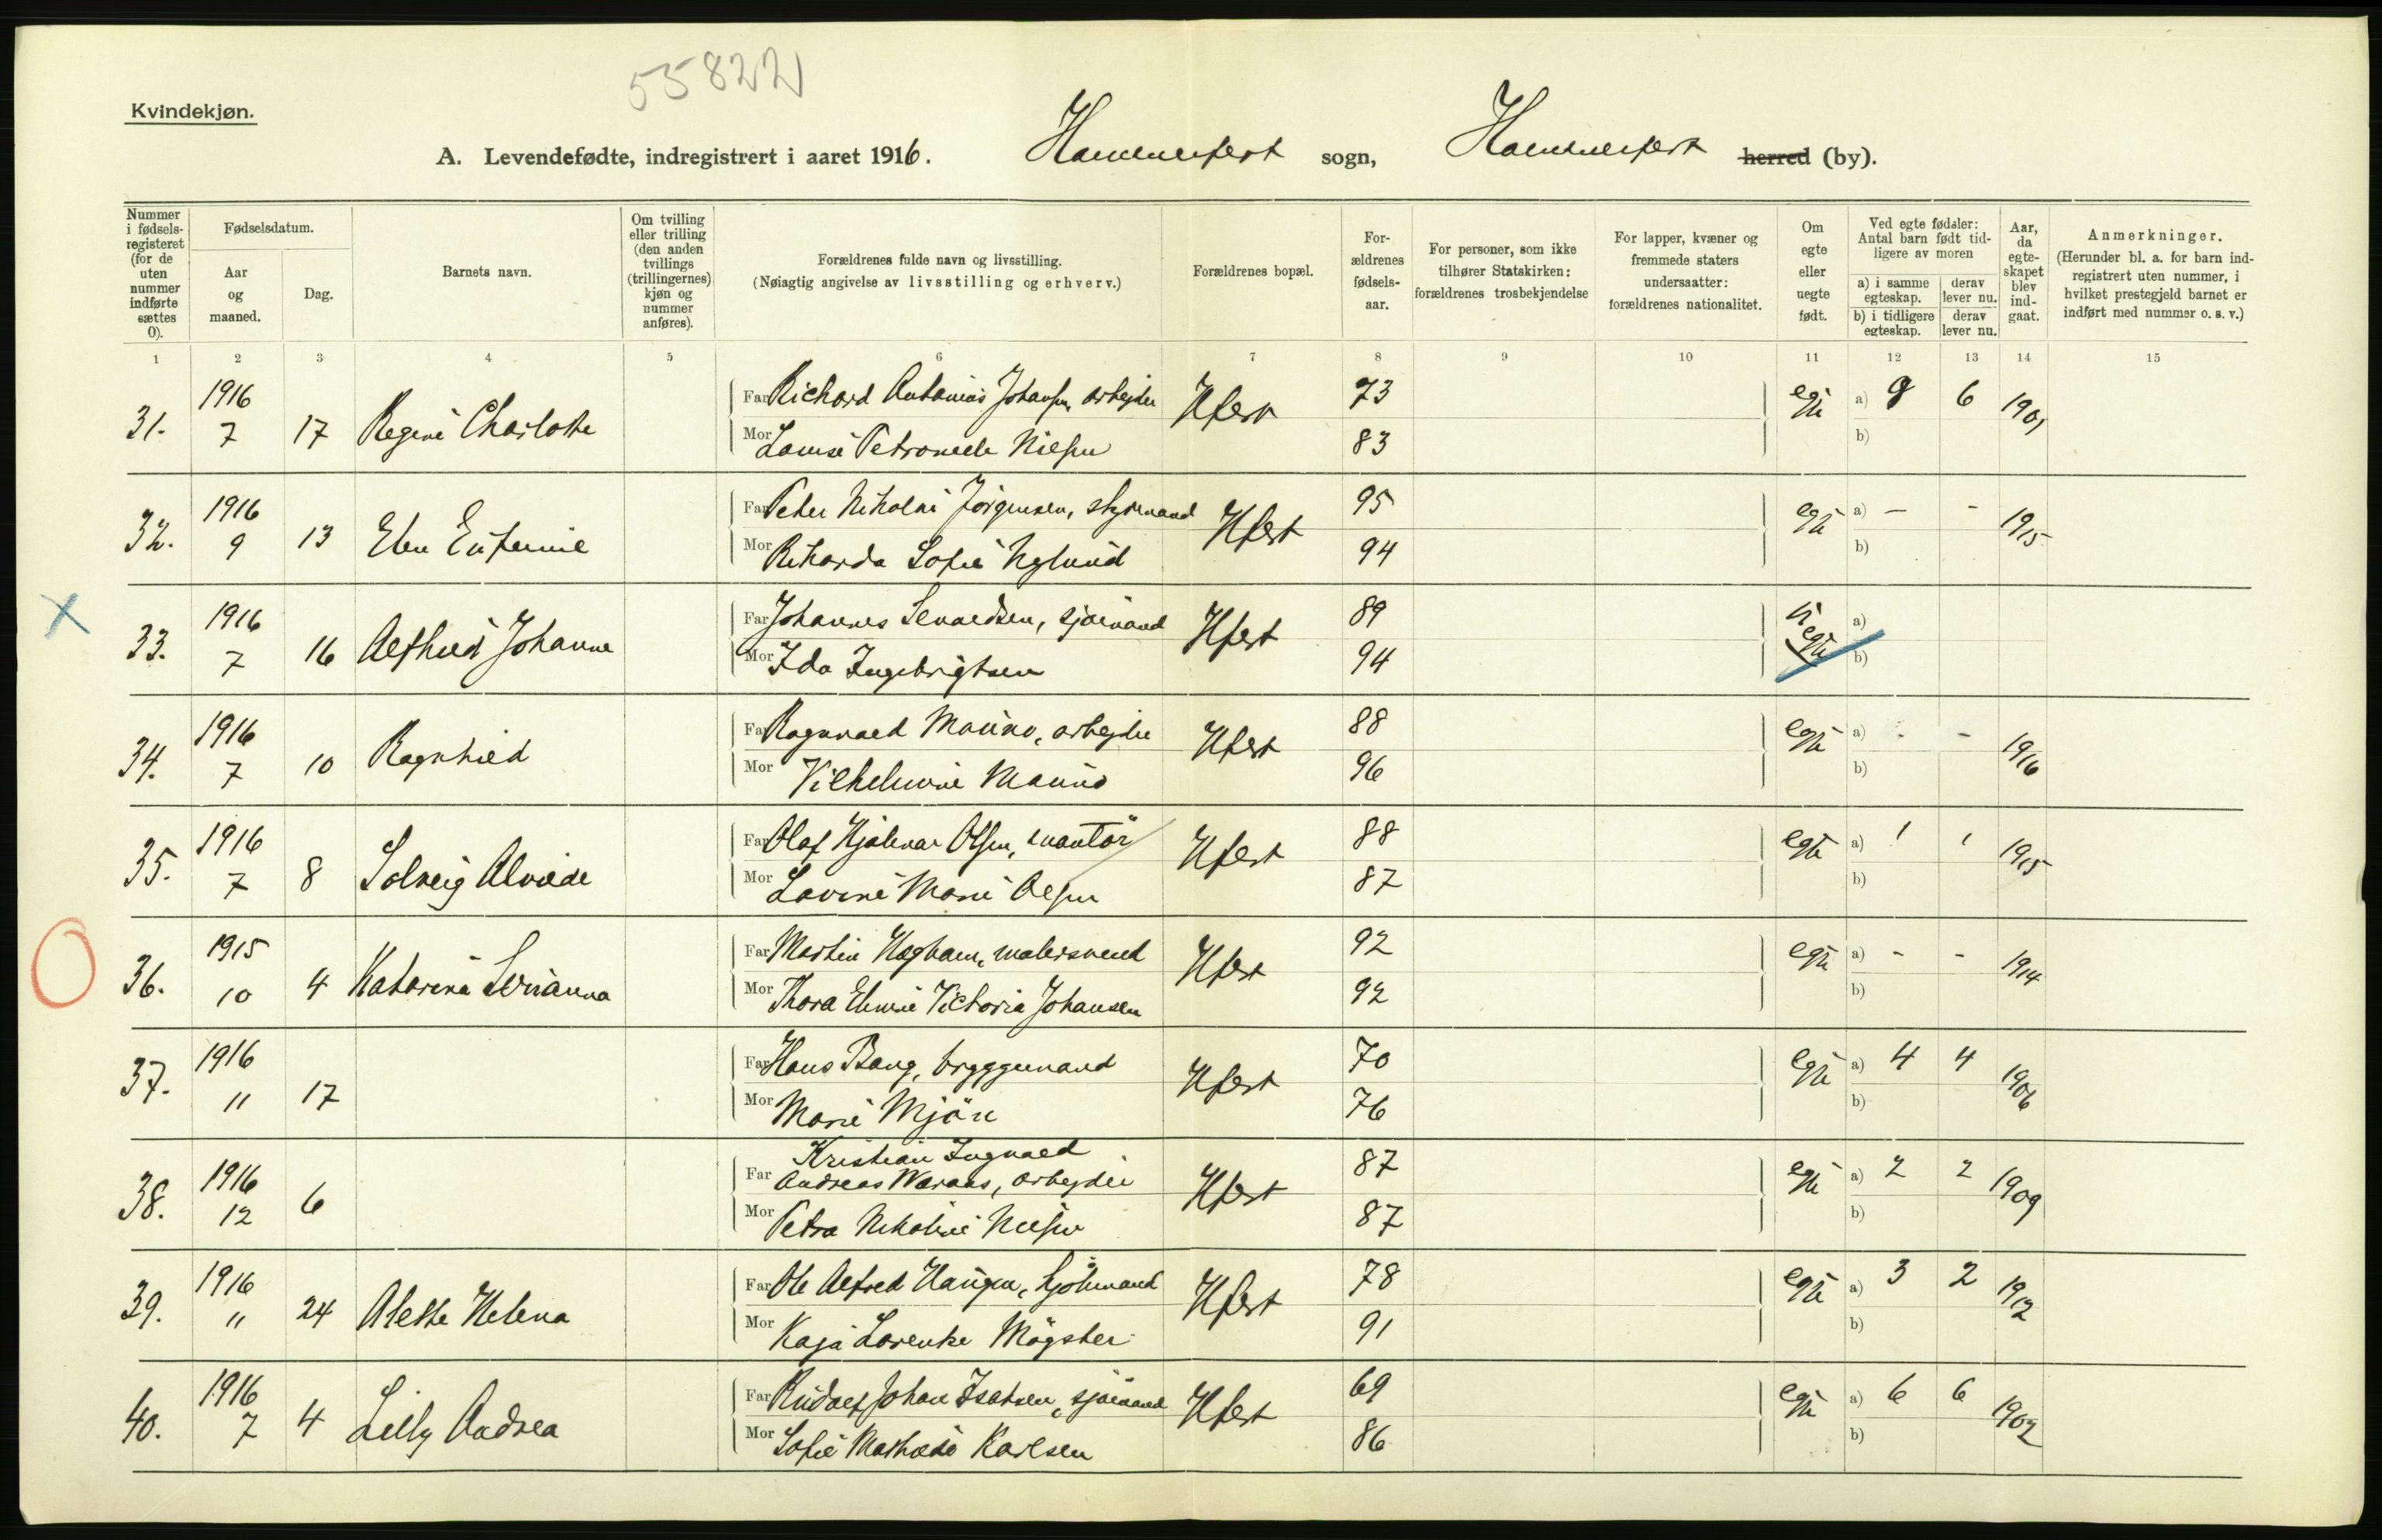 55822
Kvindekjøn.
A. Levendefødte, indregistrert i aaret 1916. Hammerfest sogn, Hammerfest herred (by).
Nummer i fødsels-registeret (for de uten nummer indførte sættes 0).
Fødselsdatum.
Aar og maaned.
Dag.
Barnets navn.
Om tvilling eller trilling (den anden tvillings (trillingernes) kjøn og nummer anføres).
Forældrenes fulde navn og livsstilling.
(Nøiagtig angivelse av livsstilling og erhverv.)
Forældrenes bopæl.
For-ældrenes fødsels-aar.
For personer, som ikke tilhører Statskirken: forældrenes trosbekjendelse
For lapper, kvæner og fremmede staters undersaatter: forældrenes nationalitet.
Om egte eller uegte født.
Ved egte fødsler: Antal barn født tid-ligere av moren
a) i samme egteskap.
derav lever nu.
b) i tidligere egteskap.
derav lever nu.
Aar, da egte-skapet blev ind-gaat.
Anmerkninger.
(Herunder bl. a. for barn ind-registrert uten nummer, i hvilket prestegjeld barnet er indført med nummer o. s. v.)
1 2 3 4 5 6 7 8 9 10 11 12 13 14 15
31. 1916 7 17 Regine Charlotte
Far Richard Antonius Johansen, arbejder Hfest 73 egte a) 9 6 1901
Mor Louise Petronelle Nilsen 83 b)
32. 1916 9 13 Eufemie
Far Peter Nikolai Jörgensen, styrmand Hfest 95 egte a) - - 1915
Mor Rikarda Sofie Nylund 94 b)
33. 1916 7 16 Alfhild Johanne
Far Johannes sjömand Hfest 89 uegte a)
Mor Ida Ingebrigtsen 94 b)
34. 1916 7 10 Ragnhild
Far Ragnvald Mauno, arbejder Hfest 88 egte a) - - 1916
Mor Vilhelmine Mauno 96 b)
35. 1916 7 8 Solveig Alvilde
Far Olaf Hjalmar Olsen, montör Hfest 88 egte a) 1 1 1915
Mor Lovine Marie Olsen 87 b)
36. 1915 10 4 Katarina
Far Martin malersvend Hfest 92 egte a) - - 1914
Mor Thora Victoria Johansen 92 b)
37. 1916 11 17
Far Hans Bang, bryggemand Hfest 70 egte a) 4 4 1906
Mor Marie Mjön 76 b)
38. 1916 12 6
Far Kristian Ingvald
Andreas arbejder Hfest 87 egte a) 2 2 1909
Mor Petra Nikoline Nilsen 87 b)
39. 1916 11 24 Aletta Helena
Far Ole Alfred Haugen, sjömand Hfest 78 egte a) 3 2 1912
Mor Kaja Lorentse Mögster 91 b)
40. 1916 7 4 Lilly Andrea
Far Rudolf Johan Isaksen, sjömand Hfest 69 egte a) 6 6 1902
Mor Sofie Mathilde Karlsen 86 b)